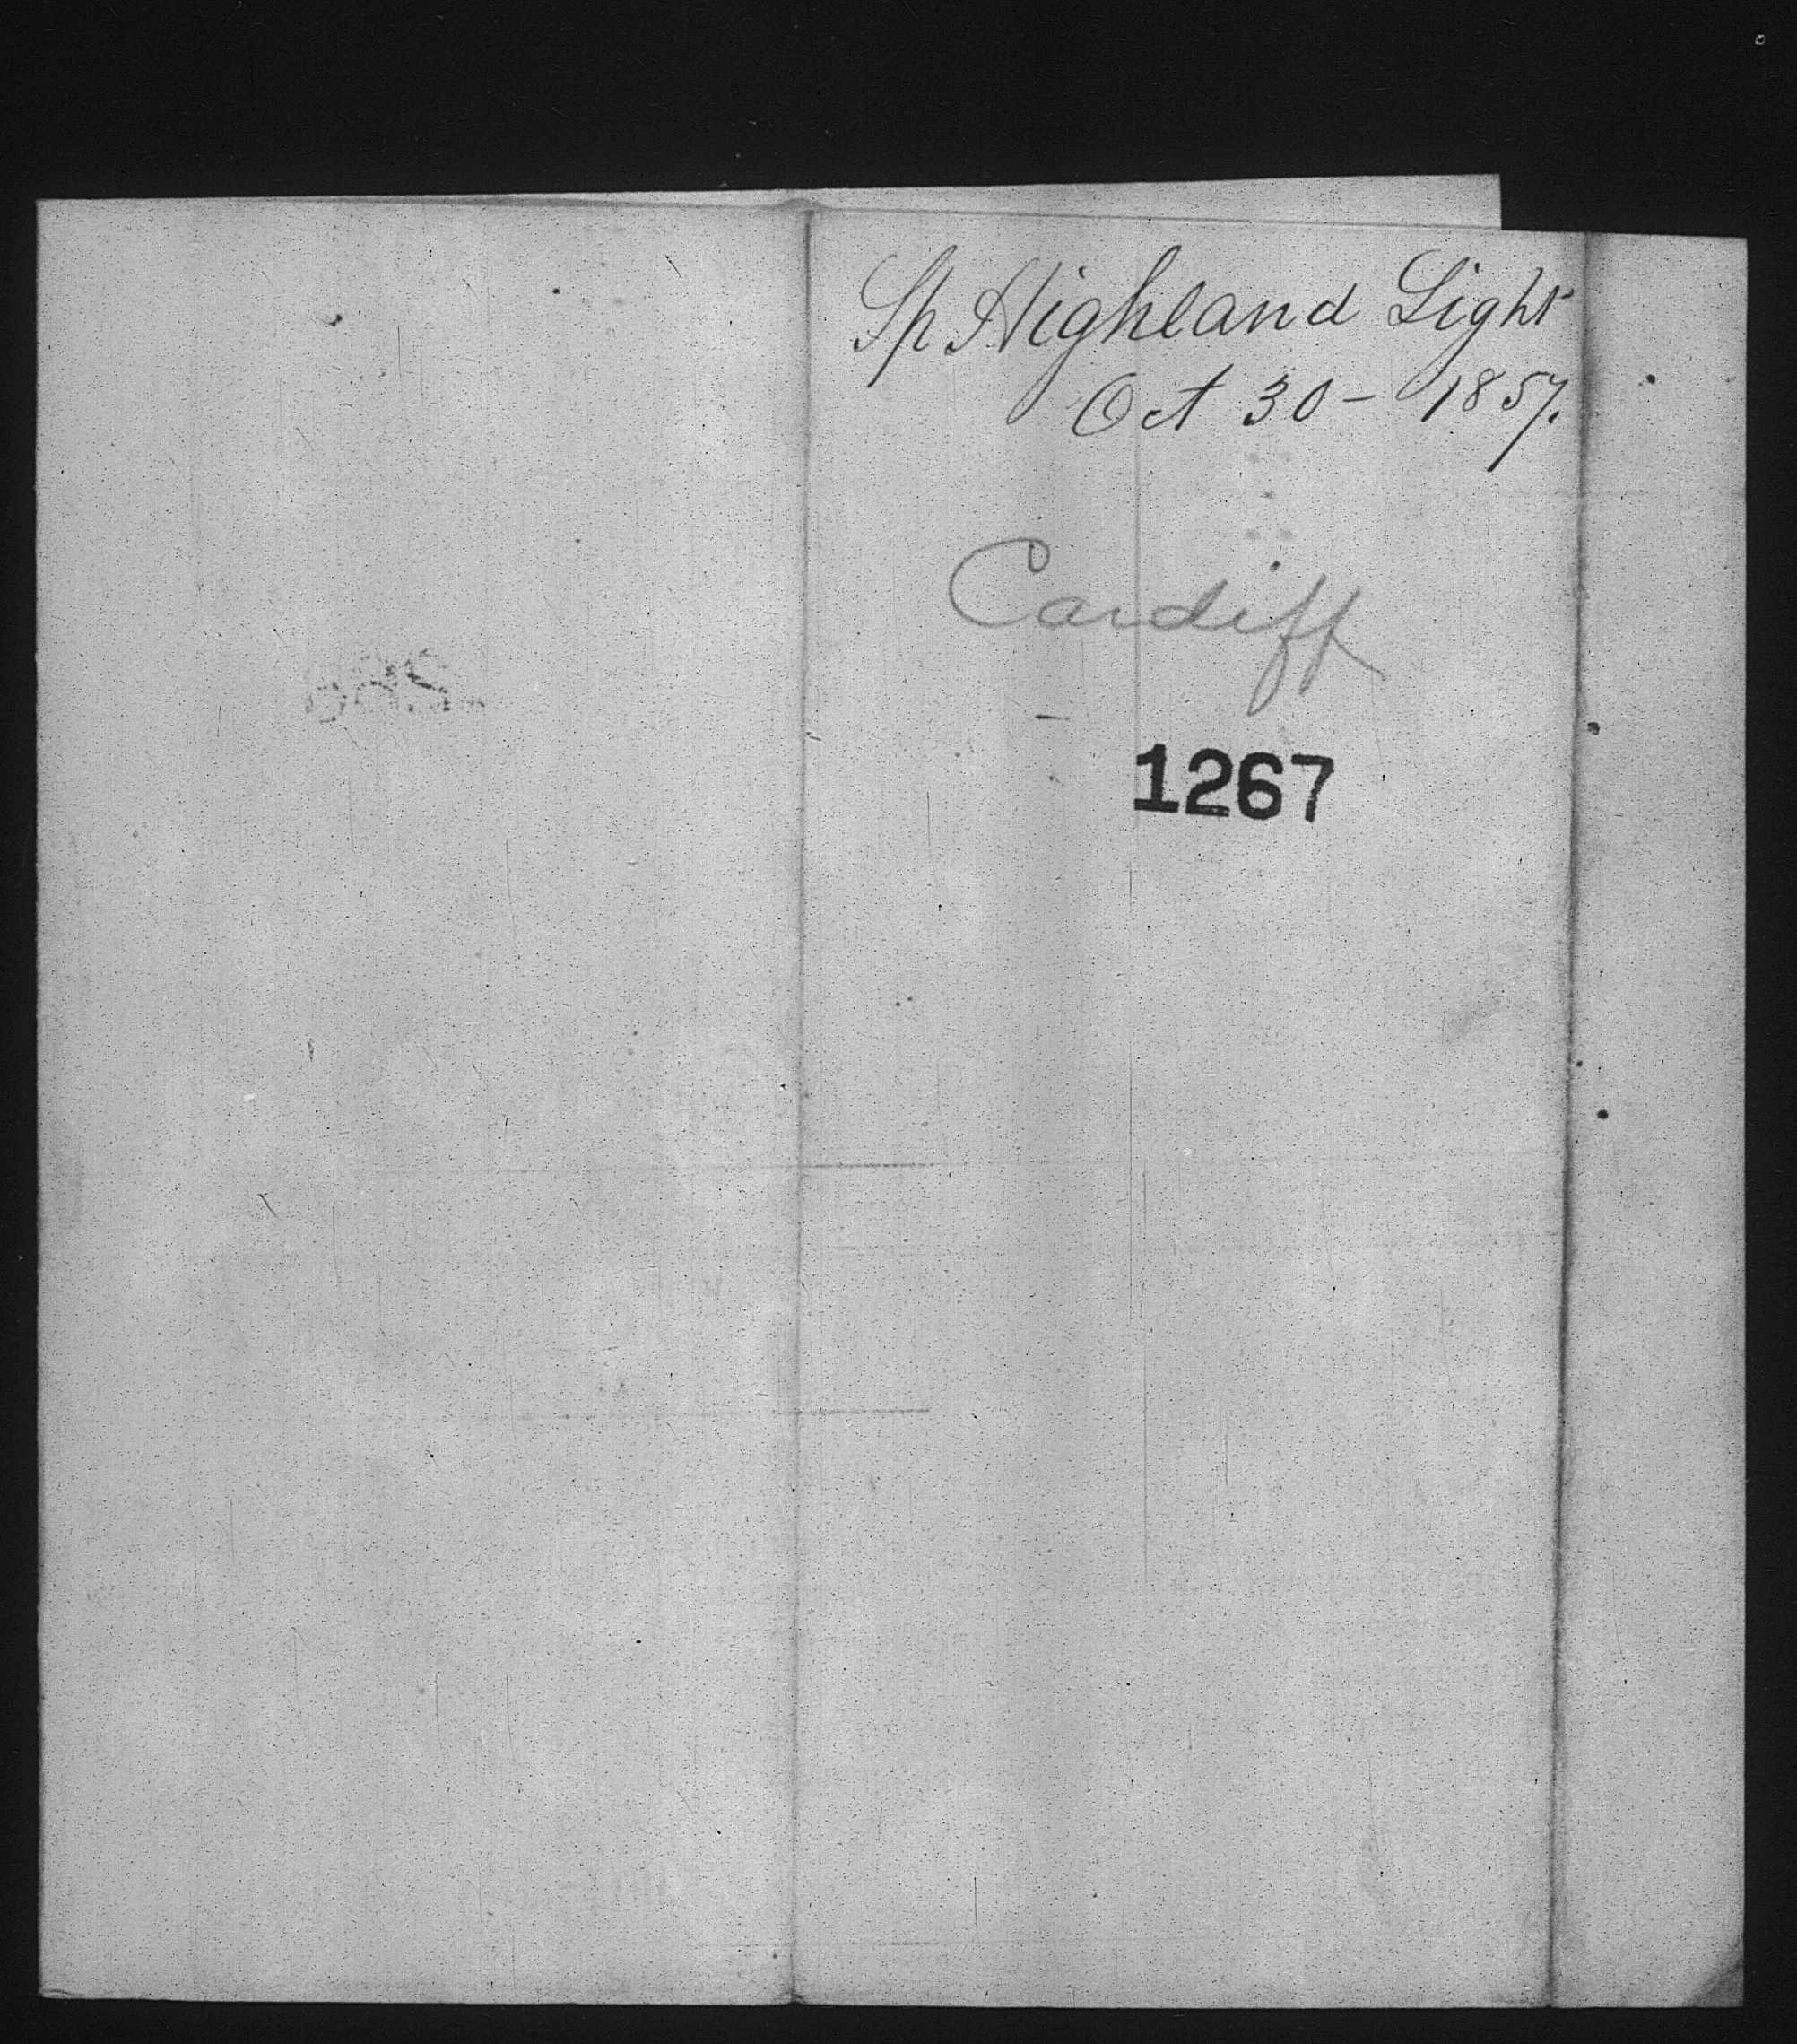 Sp Highland Light
Oct 30 - 1857.
Cardiff
1267